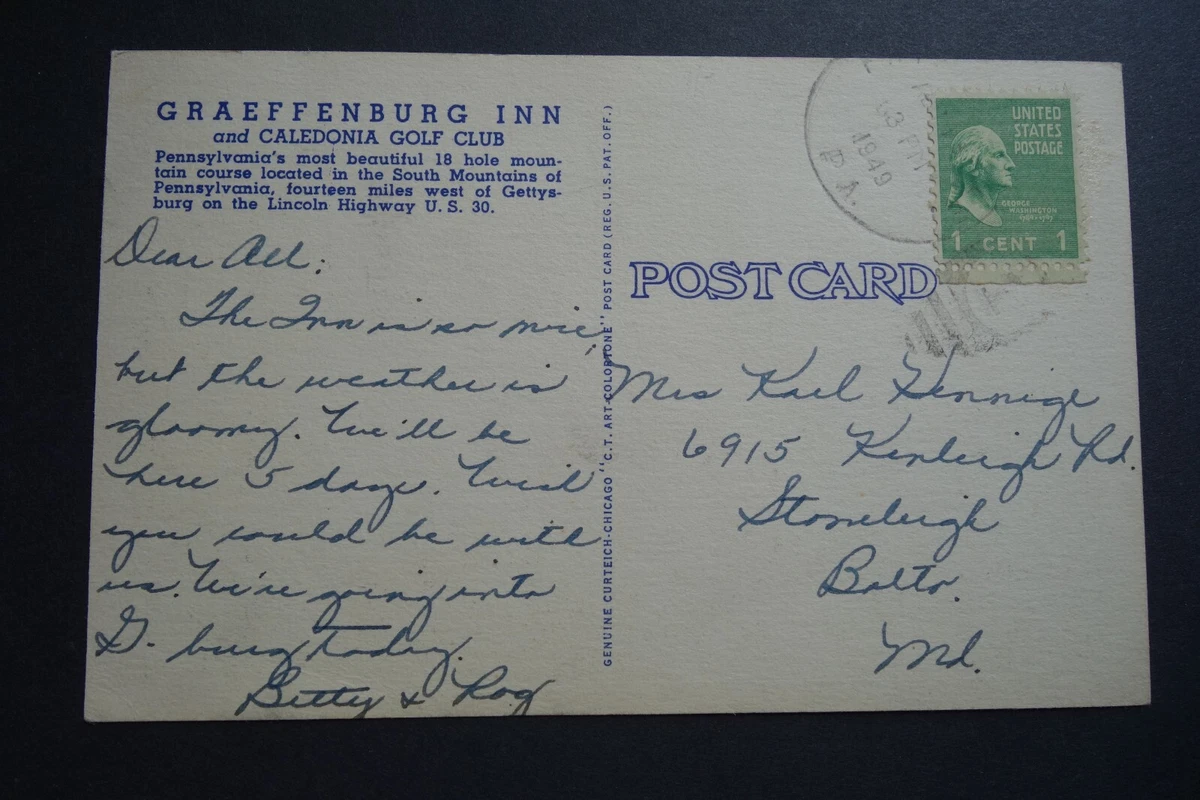 GRAEFFENBURG INN
and CALEDONIA GOLF CLUB
Pennsylvania's most beautiful 18 hole moun-
tain course located in the South Mountains of
Pennsylvania, fourteen miles west of Gettys-
burg on the Lincoln Highway U. S. 30.
Dear All:
The Inn is so nice,
but the weather is
gloomy. We'll be
here 5 days. Wish
you could be with
us. We're going into
G. burg today.
Betty & Rog
GENUINE CURTEICH-CHICAGO "C.T. ART-COLORTONE" POST CARD (REG. U.S. PAT. OFF.)
3 PM
1949
PA.
UNITED
STATES
POSTAGE
GEORGE
WASHINGTON
1789-1797
1 CENT 1
POST CARD
Mrs Karl Hennige
6915 Kenleigh Rd.
Stoneleigh
Balto.
Md.